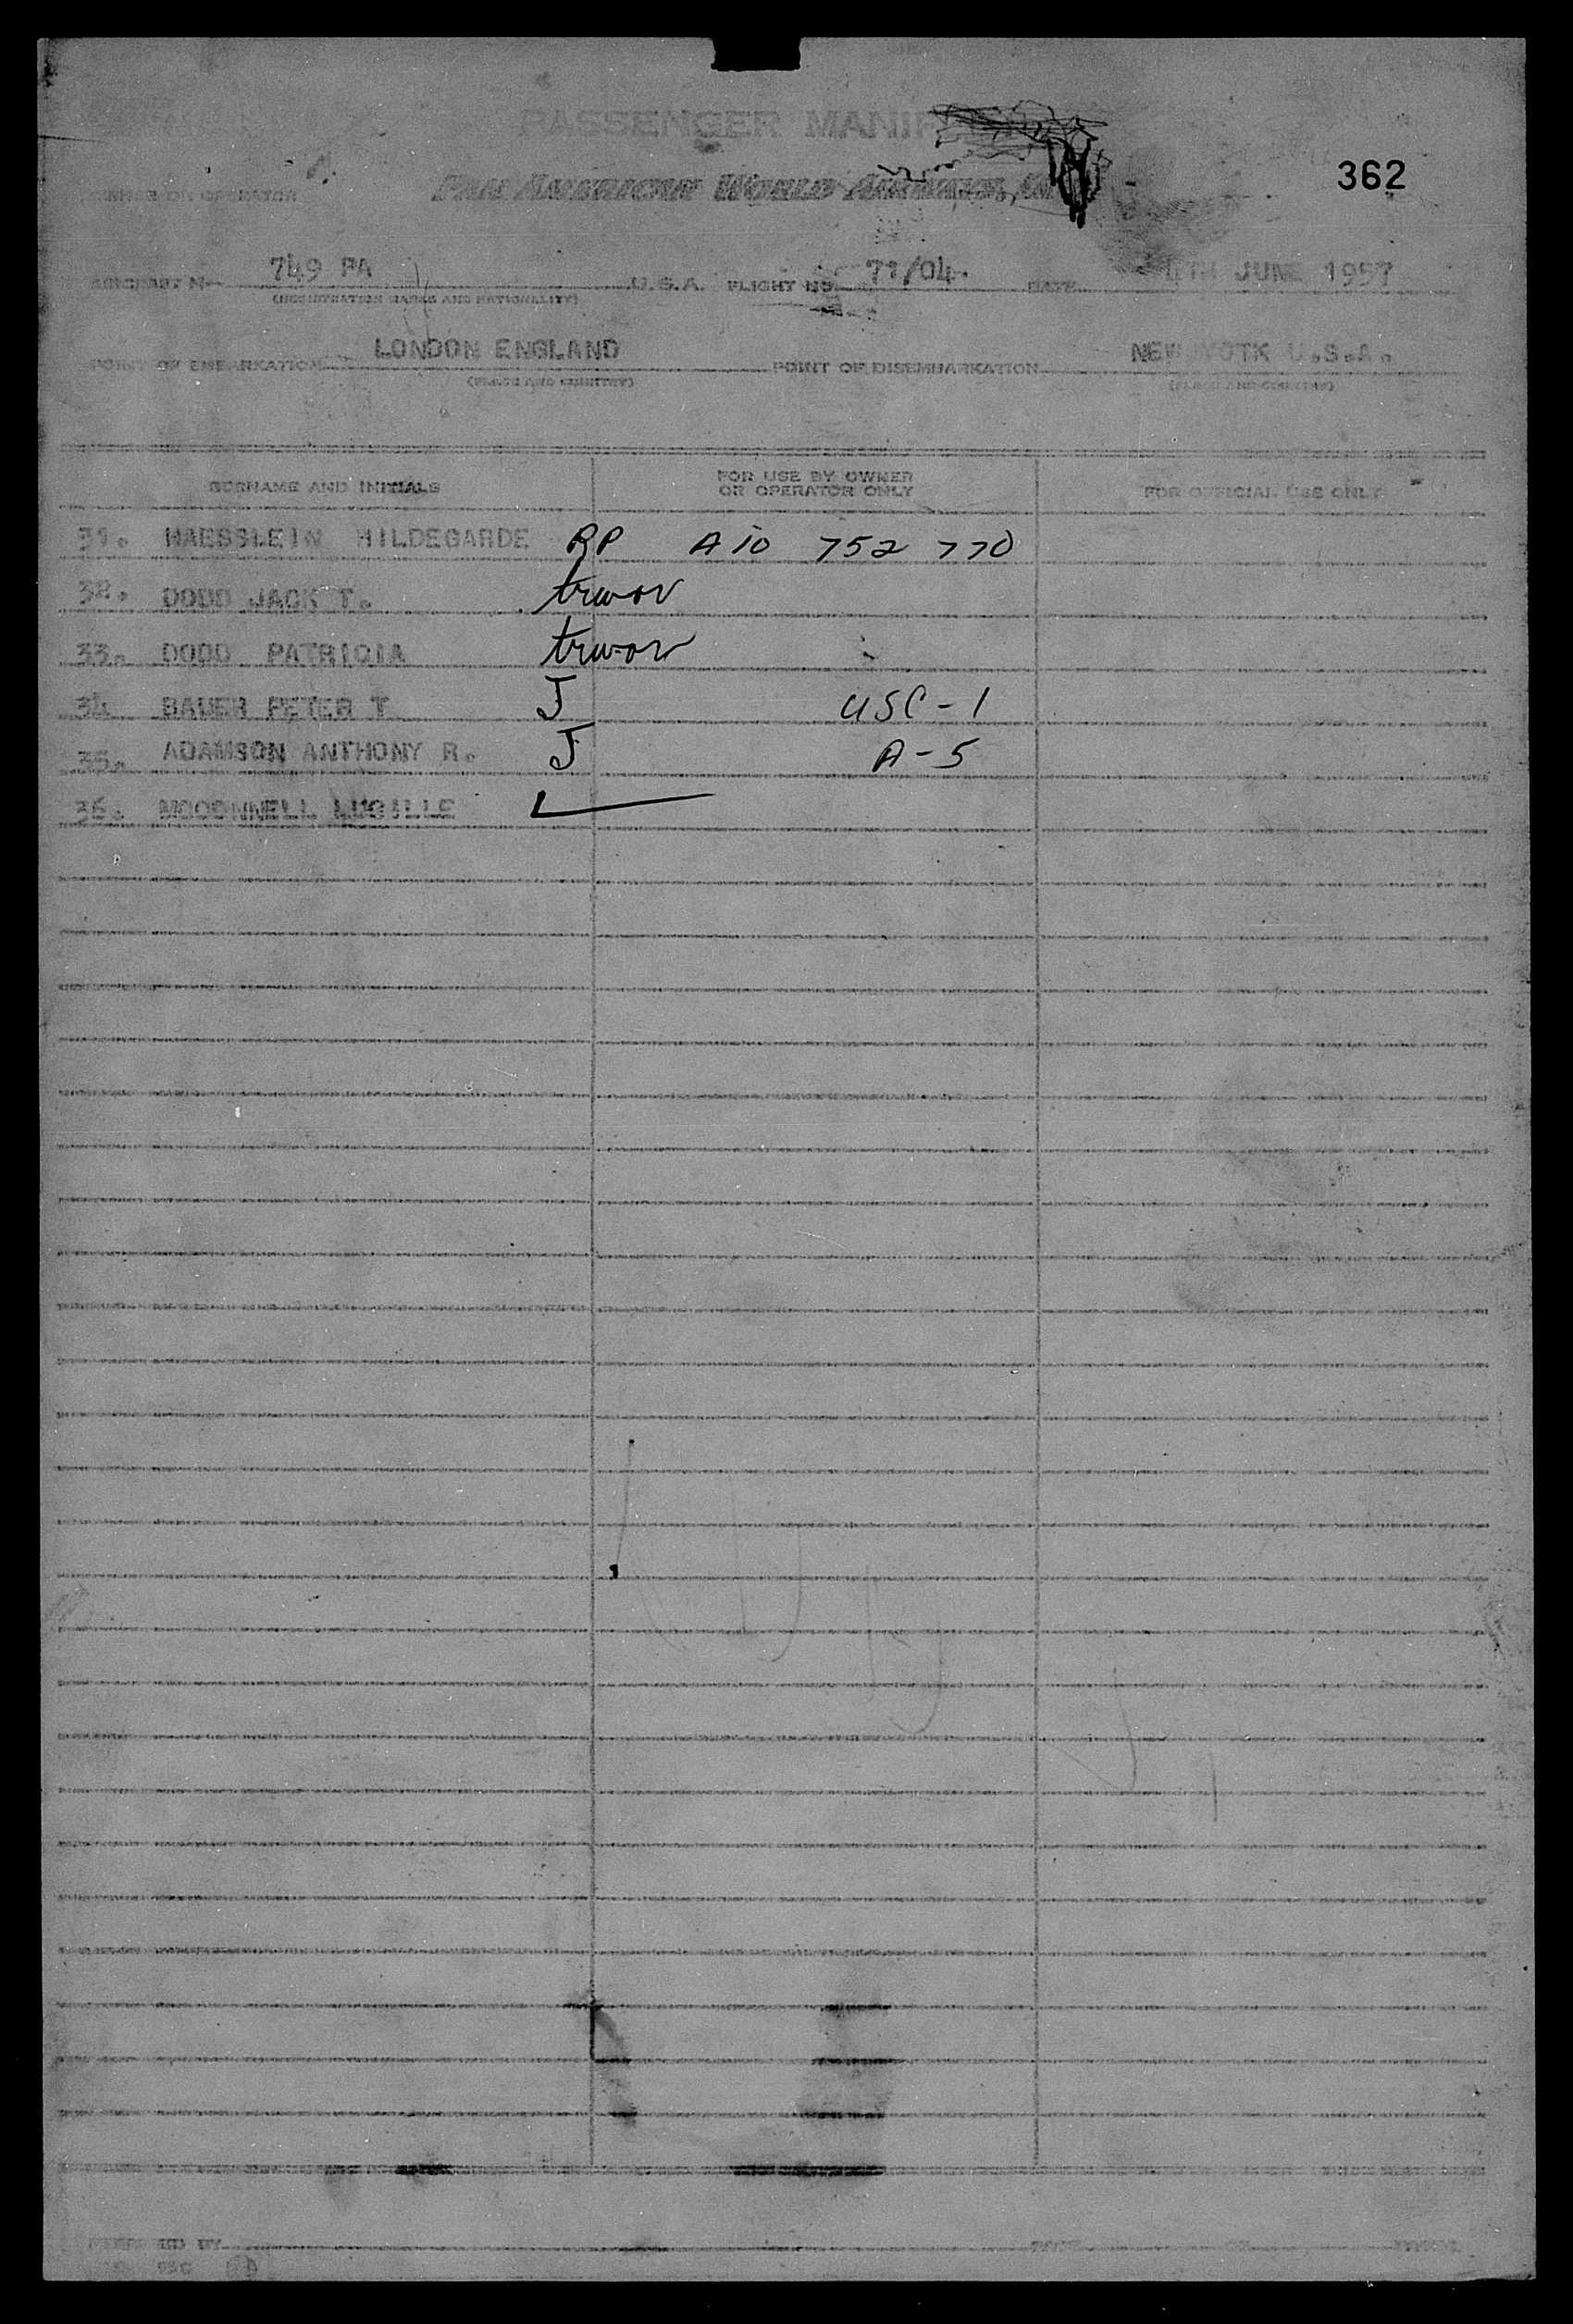 PASSENGER MANIFEST
362
PAN AMERICAN WORLD AIRWAYS, INC.
OWNER OR OPERATOR
AIRCRAFT N- 749 PA U.S.A. FLIGHT NO. 71/04. DATE 4TH JUNE 1957
(REGISTRATION MARKS AND NATIONALITY)
POINT OF EMBARKATION LONDON ENGLAND POINT OF DISEMBARKATION NEW YOTK U.S.A.
(PLACE AND COUNTRY) (PLACE AND COUNTRY)
SURNAME AND INITIALS FOR USE BY OWNER OR OPERATOR ONLY FOR OFFICIAL USE ONLY
31. HAESSLEIN HILDEGARDE RP A10 752 770
32. DODD JACK T. trwov
33. DODD PATRICIA trwov
34 BAUER PETER T J USC-1
35. ADAMSON ANTHONY R. J A-5
36. MCCONNELL LUCILLE